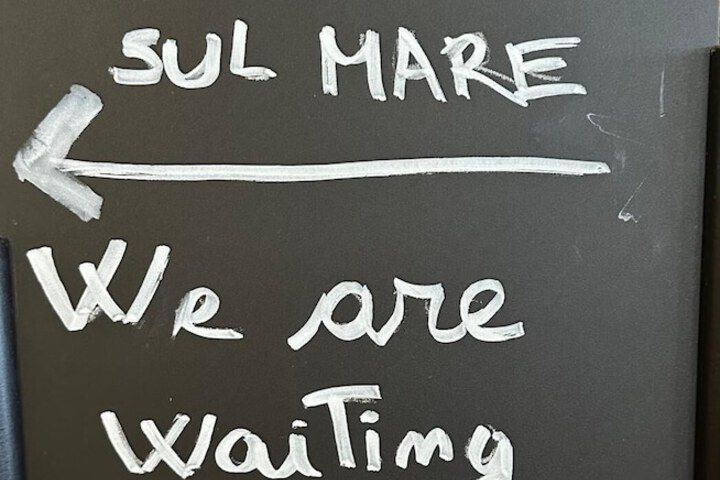 SUL MARE
We are
WaiTing